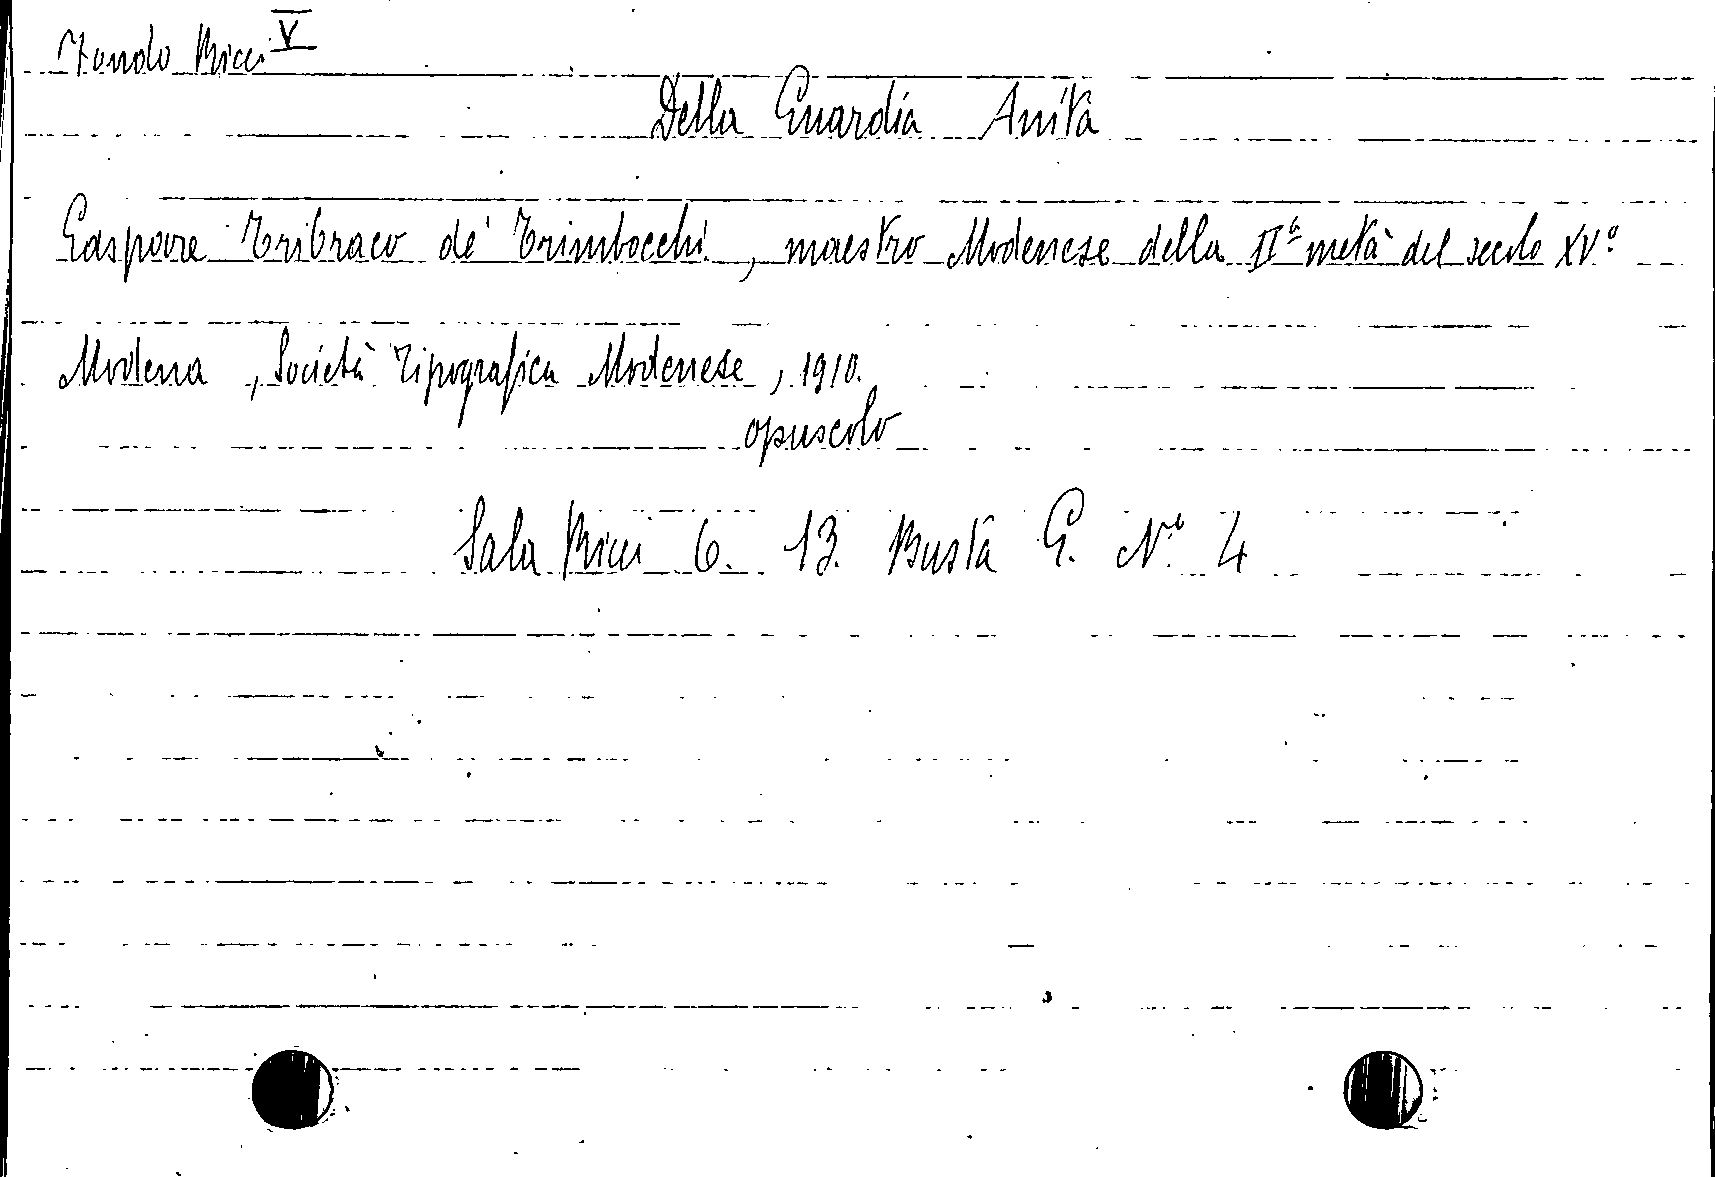 Fondo Ricci V
Della Guardia Anita
Gaspare Tribraco de' Trimbocchi, maestro Modenese della IIª metà del secolo XVº
Modena, Società Tipografica Modenese, 1910.
opuscolo
Sala Ricci 6. 13. Busta G. Nº 4